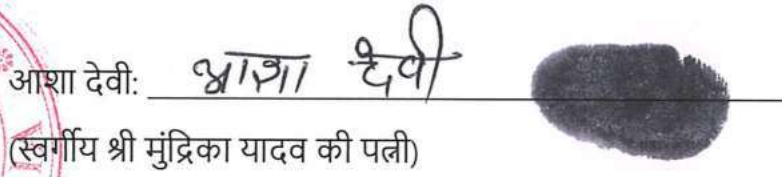 आशा देवी: आशा देवी
(स्वर्गीय श्री मुंद्रिका यादव की पत्नी)